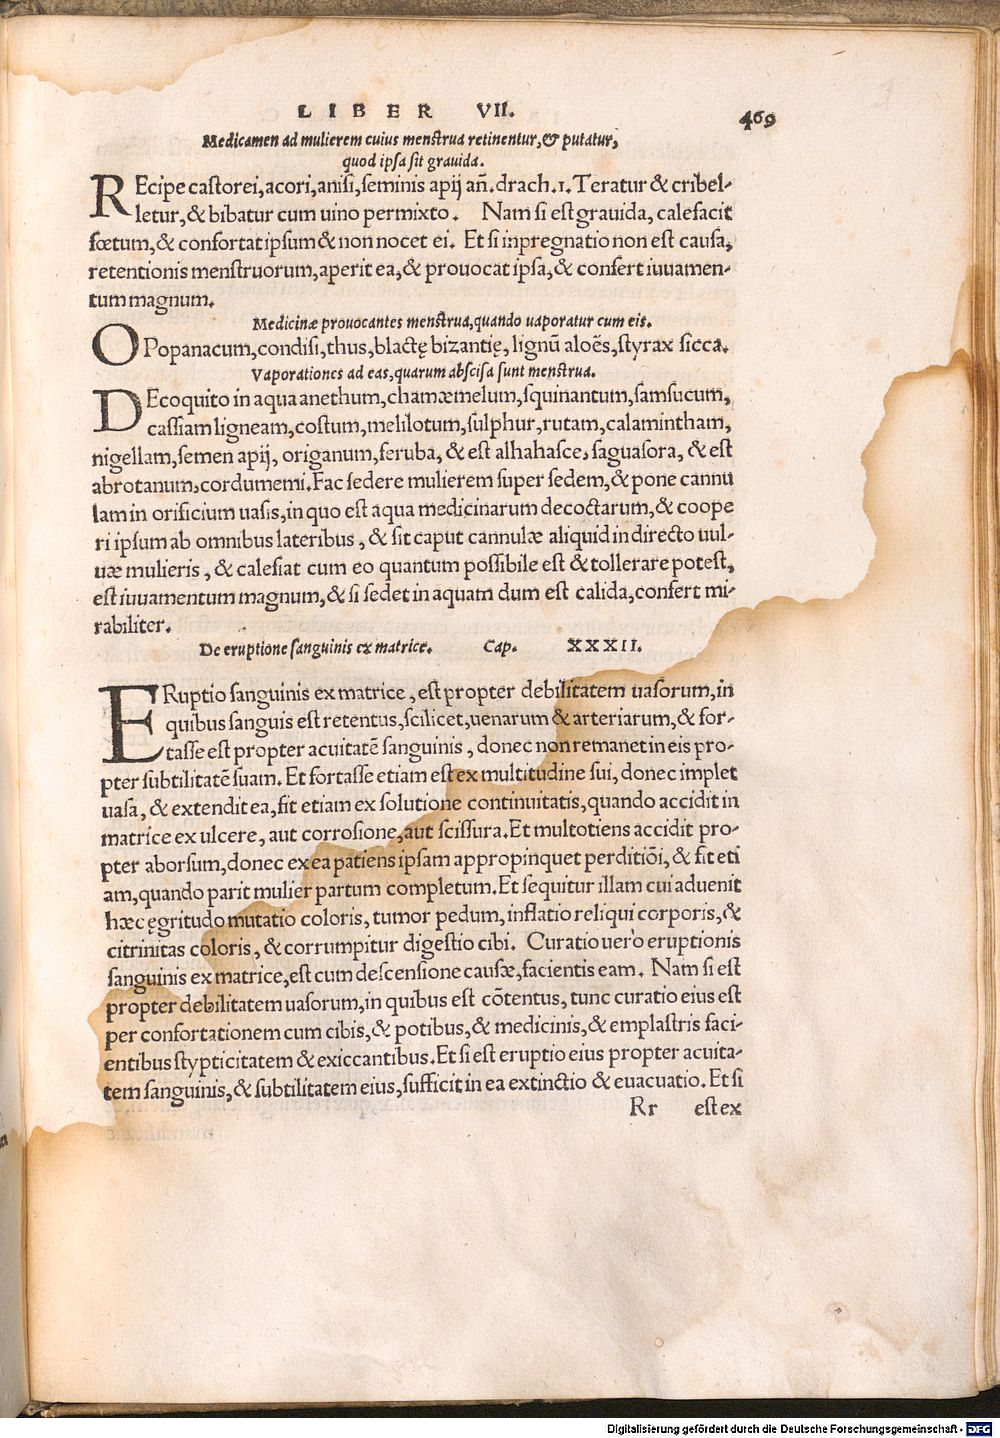 LIBER VII. 469
Medicamen ad mulierem cuius menstrua retinentur, & putatur,
quod ipsa sit grauida.
REcipe castorei, acori, anisi, seminis apij añ. drach. 1. Teratur & cribel-
letur, & bibatur cum uino permixto. Nam si est grauida, calefacit
fœtum, & confortat ipsum & non nocet ei. Et si inpregnatio non est causa,
retentionis menstruorum, aperit ea, & prouocat ipsa, & confert iuuamen-
tum magnum.
Medicinæ prouocantes menstrua, quando uaporatur cum eis.
OPopanacum, condisi, thus, blactę bizantię, lignũ aloẽs, styrax sicca.
Vaporationes ad eas, quarum abscisa sunt menstrua.
DEcoquito in aqua anethum, chamæmelum, squinantum, samsucum,
cassiam ligneam, costum, melilotum, sulphur, rutam, calamintham,
nigellam, semen apij, origanum, feruba, & est alhahasce, saguasora, & est
abrotanum, cordumemi. Fac sedere mulierem super sedem, & pone cannu
lam in orificium uasis, in quo est aqua medicinarum decoctarum, & coope
ri ipsum ab omnibus lateribus, & sit caput cannulæ aliquid in directo uul-
uæ mulieris, & calefiat cum eo quantum possibile est & tollerare potest,
est iuuamentum magnum, & si sedet in aquam dum est calida, confert mi-
rabiliter.
De eruptione sanguinis ex matrice. Cap. XXXII.
ERuptio sanguinis ex matrice, est propter debilitatem uasorum, in
quibus sanguis est retentus, scilicet, uenarum & arteriarum, & for-
tasse est propter acuitatẽ sanguinis, donec non remanet in eis pro-
pter subtilitatẽ suam. Et fortasse etiam est ex multitudine sui, donec implet
uasa, & extendit ea, fit etiam ex solutione continuitatis, quando accidit in
matrice ex ulcere, aut corrosione, aut scissura. Et multotiens accidit pro-
pter aborsum, donec ex ea patiens ipsam appropinquet perditiõi, & fit eti
am, quando parit mulier partum completum. Et sequitur illam cui aduenit
hæc ęgritudo mutatio coloris, tumor pedum, inflatio reliqui corporis, &
citrinitas coloris, & corrumpitur digestio cibi. Curatio uero eruptionis
sanguinis ex matrice, est cum descensione causæ, facientis eam. Nam si est
propter debilitatem uasorum, in quibus est cõtentus, tunc curatio eius est
per confortationem cum cibis, & potibus, & medicinis, & emplastris faci-
entibus stypticitatem & exiccantibus. Et si est eruptio eius propter acuita-
tem sanguinis, & subtilitatem eius, sufficit in ea extinctio & euacuatio. Et si
Rr est ex
Digitalisierung gefördert durch die Deutsche Forschungsgemeinschaft - DFG